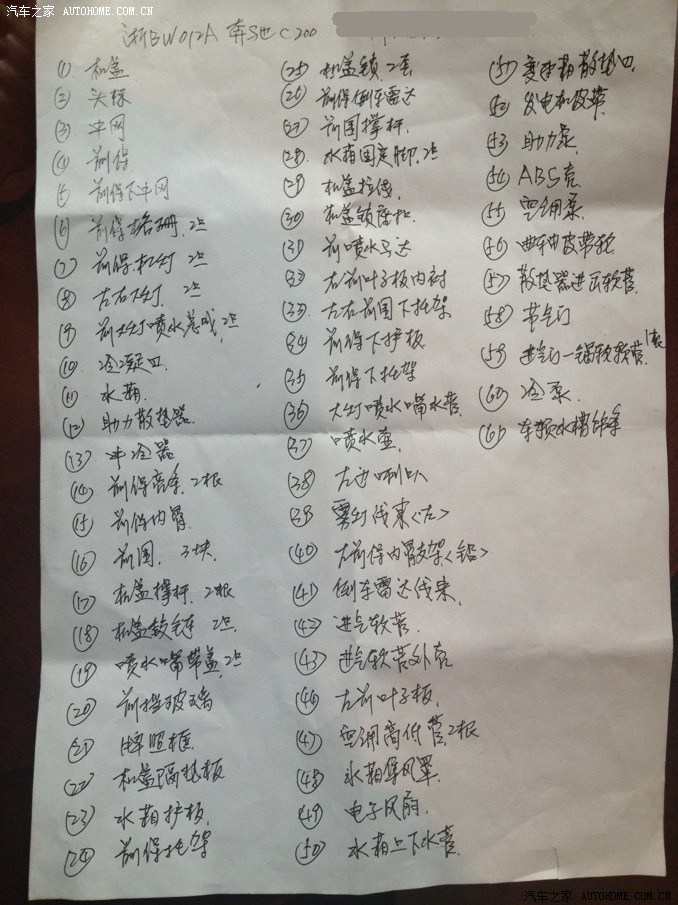 汽车之家 AUTOHOME.COM.CN
浙BW012A 奔驰C200
① 机盖
② 头标
③ 中网
④ 前保
⑤ 前保下中网
⑥ 前保格栅.2只
⑦ 前保杠灯 2只
⑧ 左右大灯. 2只
⑨ 前大灯喷水总成.2只
⑩ 冷凝口
⑪ 水箱.
⑫ 助力散热器.
⑬ 中冷器
⑭ 前保亮条.2根
⑮ 前保内骨.
⑯ 前围. 3块.
⑰ 机盖撑杆.2根
⑱ 机盖铰链 2只.
⑲ 喷水嘴带盖.2只
⑳ 前挡玻璃
㉑ 牌照框.
㉒ 机盖隔热板
㉓ 水箱护板.
㉔ 前保托架
㉕ 机盖锁.2套
㉖ 前保倒车雷达
㉗ 前围撑杆.
㉘ 水箱固定脚.2只
㉙ 机盖拉线.
㉚ 机盖锁座
㉛ 前喷水马达
33 右前叶子板内衬
㉝ 左右前围下托架
㉞ 前保下护板
㉟ 前保下托架
㊱ 大灯喷水嘴水管.
㊲ 喷水壶.
㊳ 左边喇叭
㊴ 雾灯线束<左>
㊵ 左前保内骨支架<铝>
㊶ 倒车雷达线束.
㊷ 进气软管.
㊸ 进气软管外壳
㊹ 左前叶子板.
㊼ 空调高低管.2根
㊽ 水箱导风罩.
㊾ 电子风扇.
㊿ 水箱上下水管.
(51) 变速箱散热口.
52 发电机皮带.
53 助力泵.
54 ABS壳.
55 空调泵.
56 曲轴皮带轮
57 散热器进出软管.
58 节气门
59 进气门一锅软软管.1套
60 冷泵.
61 车颈水槽饰条
汽车之家 AUTOHOME.COM.CN